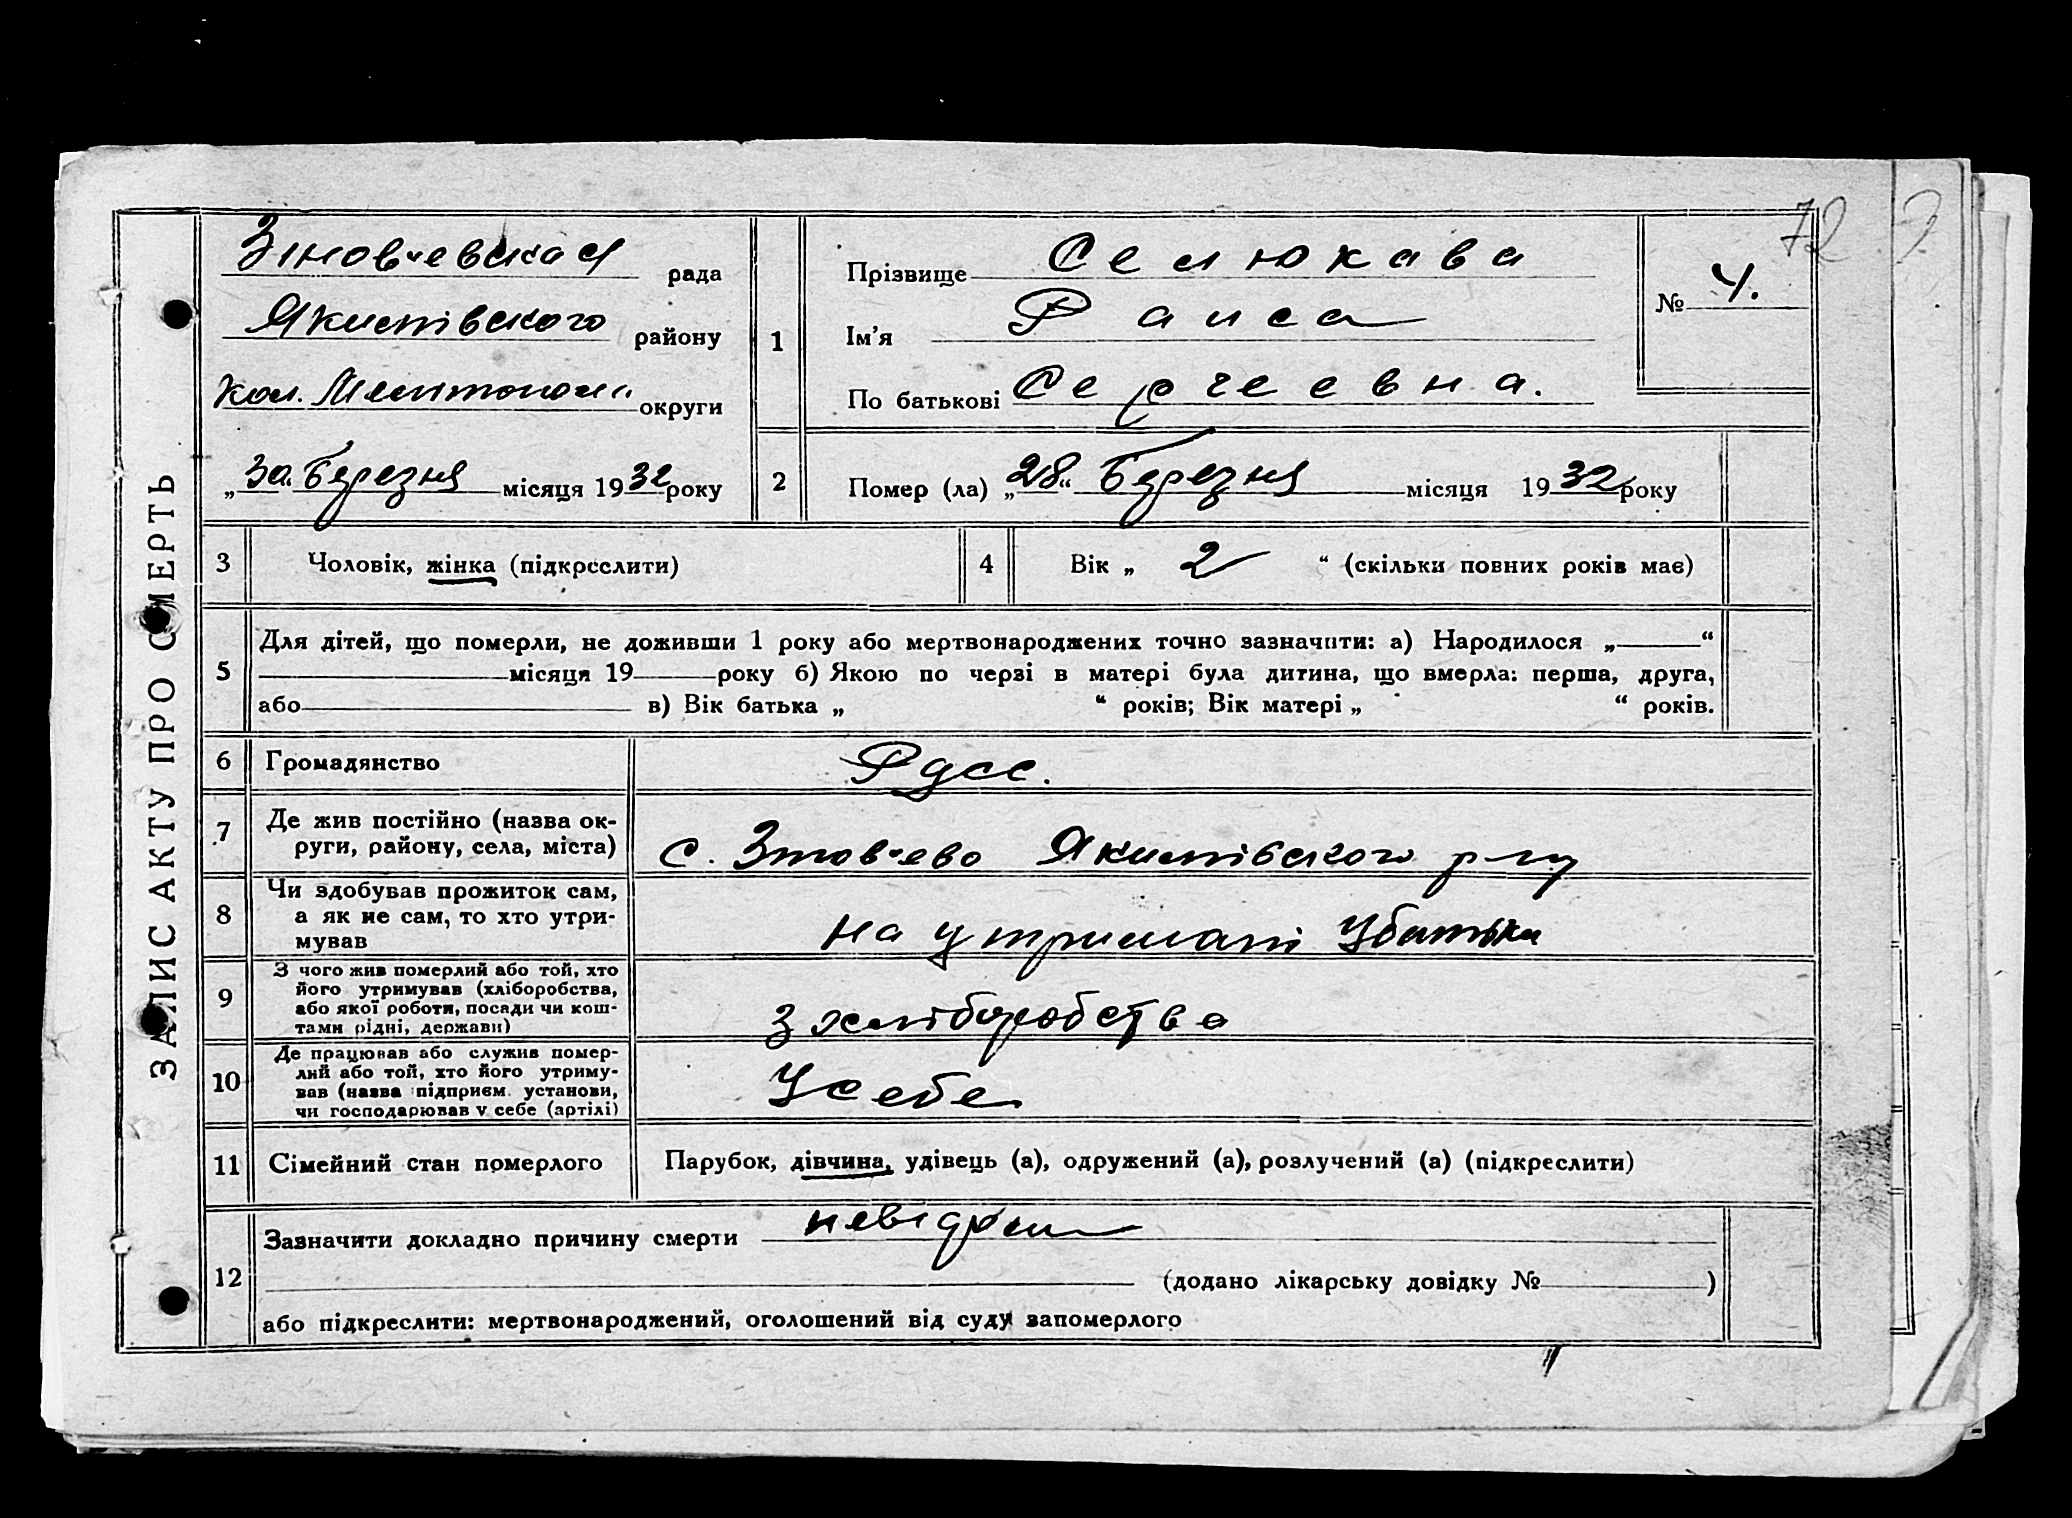 72
ЗАПИС АКТУ ПРО СМЕРТЬ
Зіновчевская рада
Якимівского району
кол. Мелитополь округи
„30“ Березня місяця 1932 року
1
Прізвище Селюкава
Ім'я Раиса
По батькові Сергеевна.
№ 4.
2
Помер (ла) „28“ Березня місяця 1932 року
3
Чоловік, жінка (підкреслити)
4
Вік „ 2 “ (скільки повних років має)
5
Для дітей, що померли, не доживши 1 року або мертвонароджених точно зазначити: а) Народилося „ “
місяця 19 року б) Якою по черзі в матері була дитина, що вмерла: перша, друга,
або в) Вік батька „ “ років; Вік матері „ “ років.
6
Громадянство
Рдсс.
7
Де жив постійно (назва ок-
руги, району, села, міста)
с. Зіновчево Якимівского р-ну
8
Чи здобував прожиток сам,
а як не сам, то хто утри-
мував
на утримані Убатька
9
З чого жив померлий або той, хто
його утримував (хліборобства,
або якої роботи, посади чи кош-
тами рідні, держави)
з хліборобства
10
Де працював або служив помер-
лий або той, хто його утриму-
вав (назва підприєм. установи,
чи господарював у себе (артілі)
Усебе
11
Сімейний стан померлого
Парубок, дівчина, удівець (а), одружений (а), розлучений (а) (підкреслити)
12
Зазначити докладно причину смерти невідом
(додано лікарську довідку № )
або підкреслити: мертвонароджений, оголошений від суду запомерлого